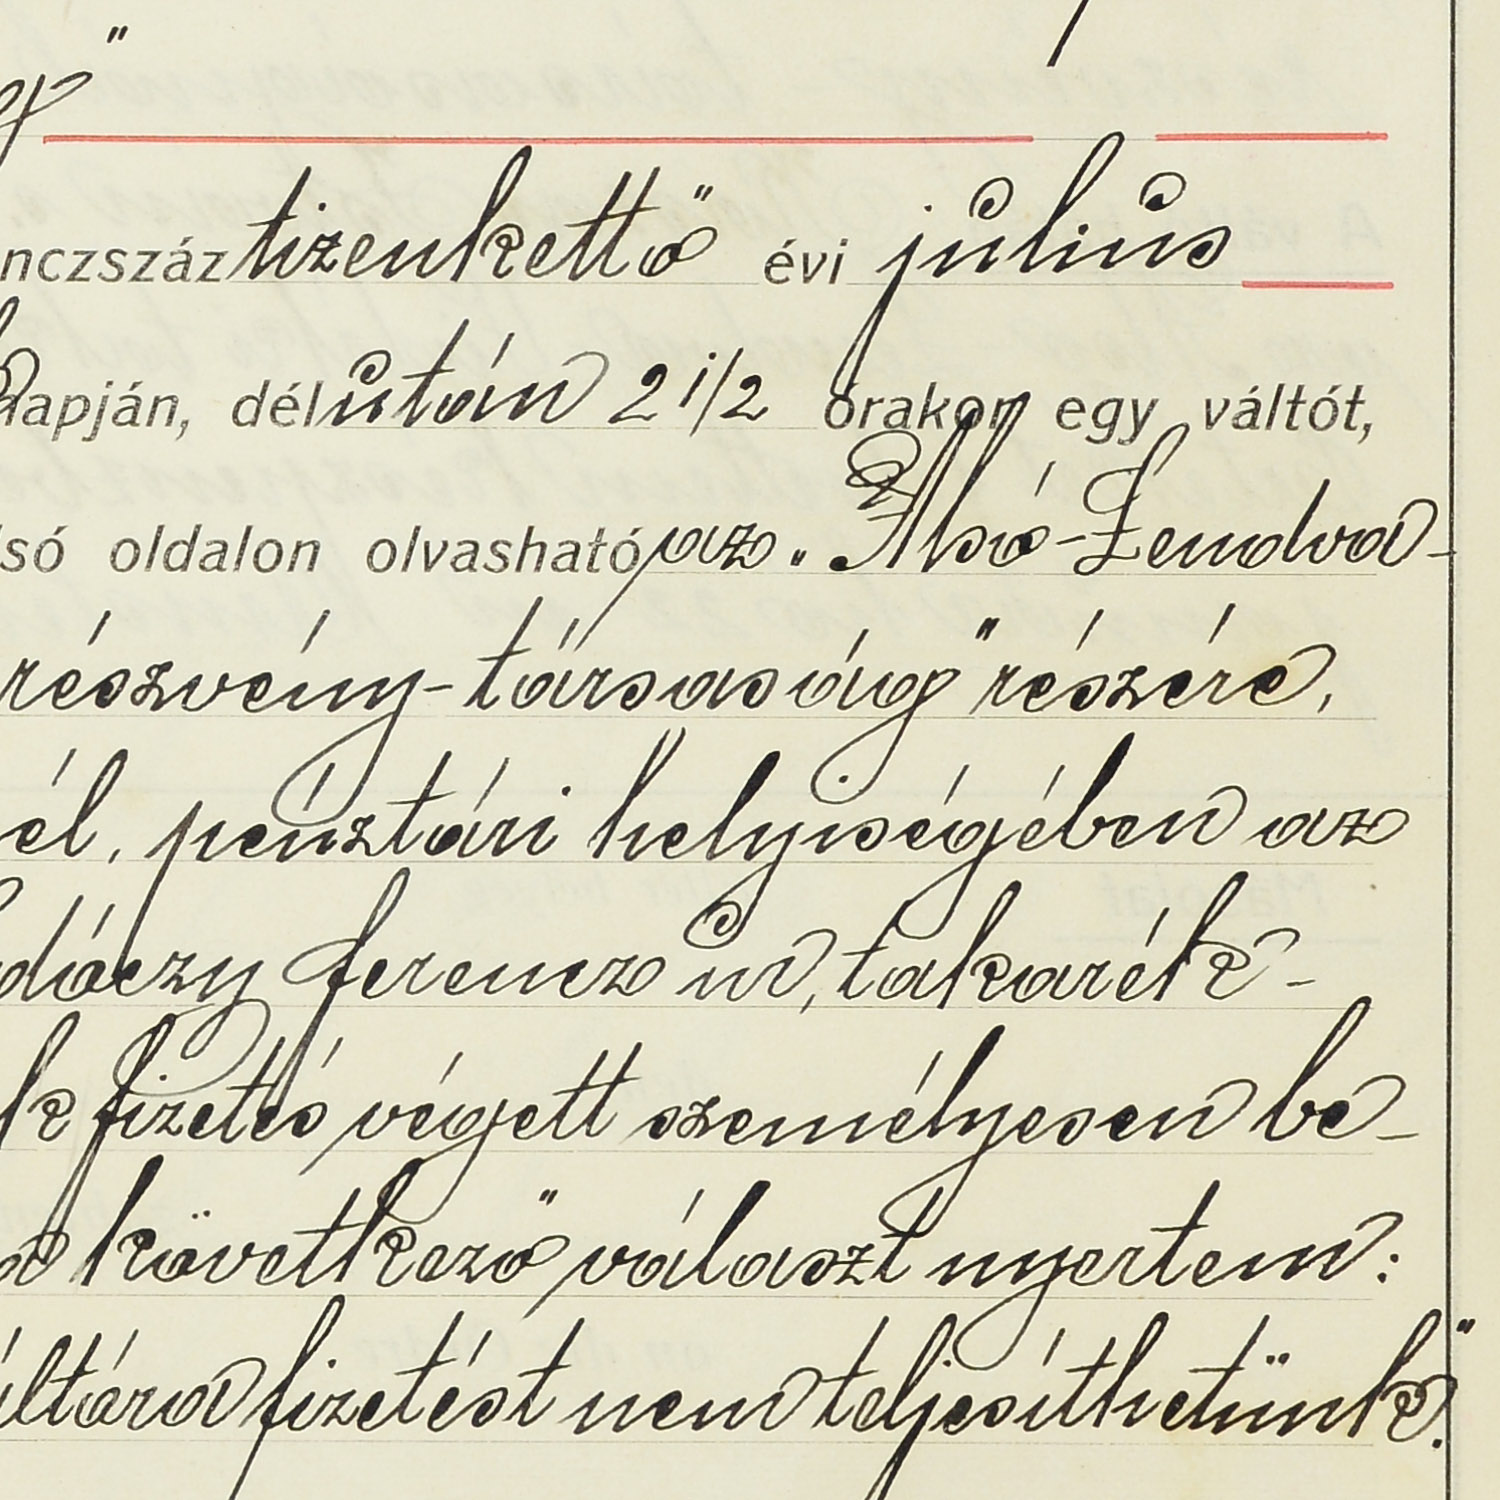 "
nczszáz tizenkettő évi július
napján, délután 2 1/2 órakor egy váltót,
lsó oldalon olvasható, az „Alsó-Lendva-
részvény-társaság" részére,
él, pénztári helyiségében az
dóczy Ferencz úr, takarék-
k fizetés végett személyesen be-
a következő választ nyertem:
áltóra fizetést nem teljesíthetünk."